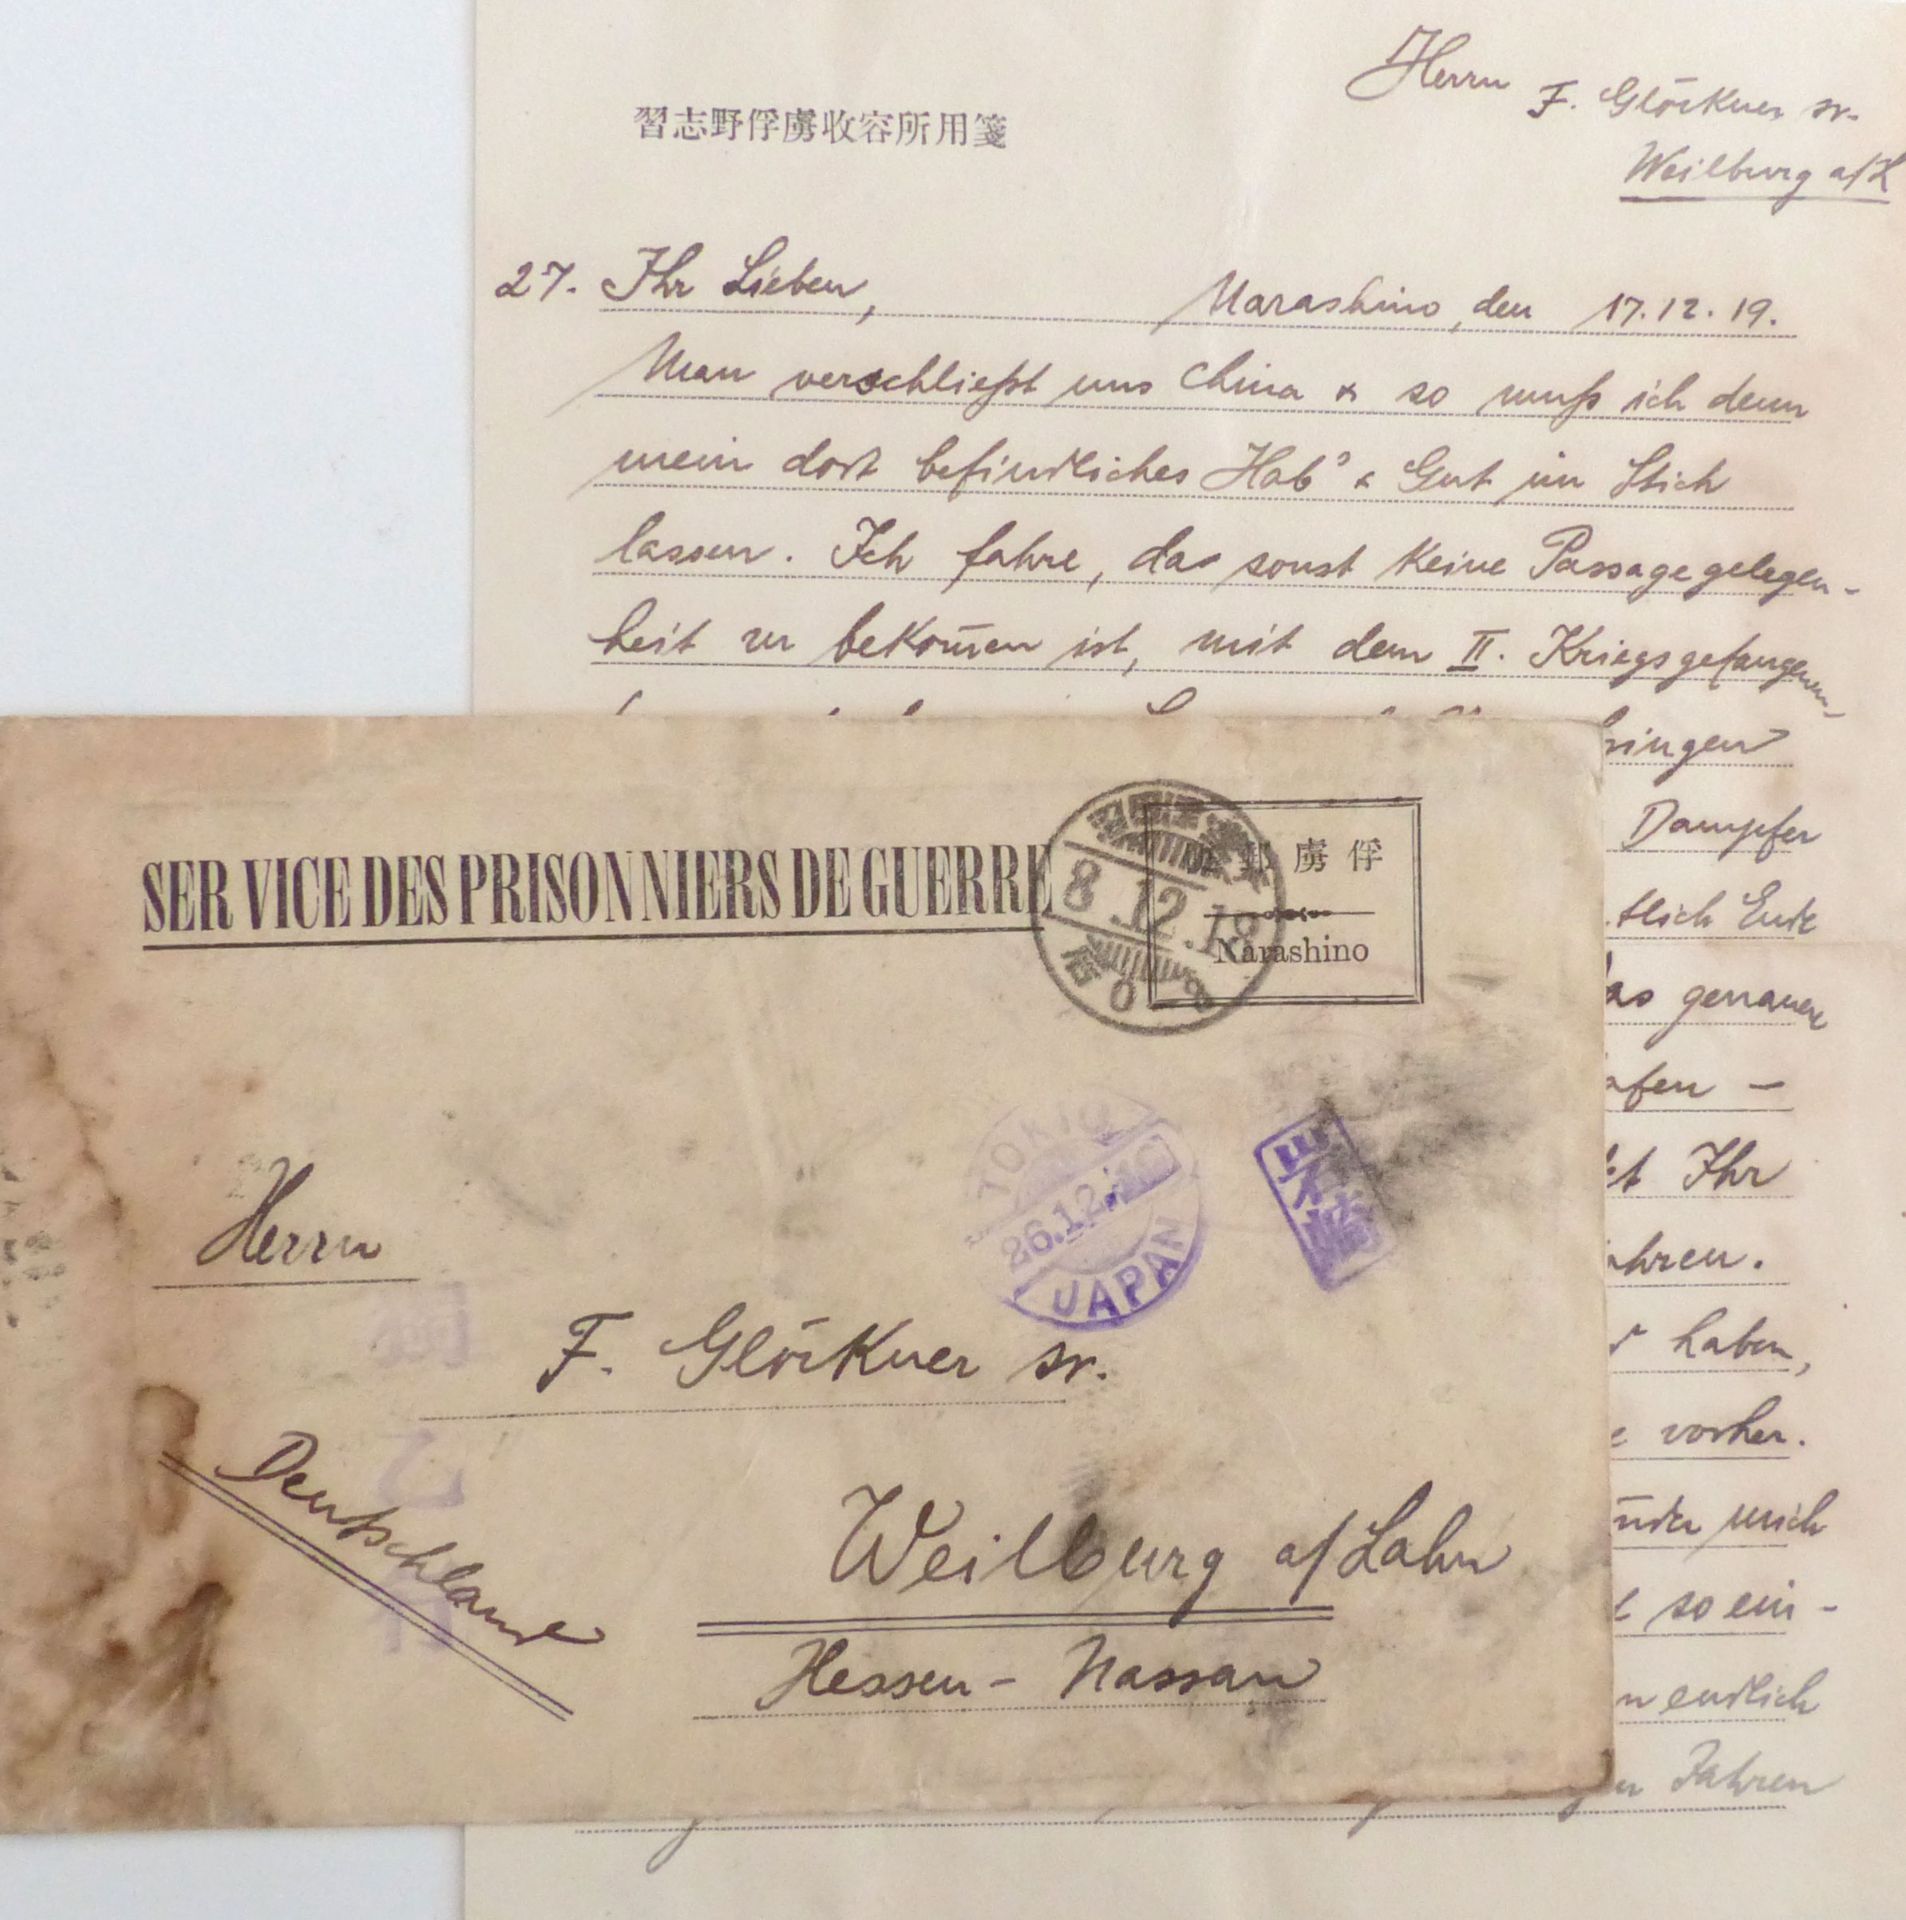 Herrn
F. Glöckner sr.
Weilburg a/L
習志野俘虜收容所用箋
27. Ihr Lieben, Narashino, den 17.12.19.
Man verschließt uns China & so muß ich denn
mein dort befindliches Hab' & Gut im Stich
lassen. Ich fahre, da sonst keine Passagegelegen-
heit zu bekom̅en ist, mit dem II. Kriegsgefangenen-
ringen
Dampfer
tlich Ende
das genauere
afen -
Ihr
ahren.
haben,
vorher.
mich
so ein-
endlich
Jahren
SERVICE DES PRISONNIERS DE GUERRE
8.12.18
虜 俘
Narashino
TOKIO
26.12.19
JAPAN
Herrn
F. Glöckner sr.
Deutschland
Weilburg a/Lahn
Hessen-Nassau